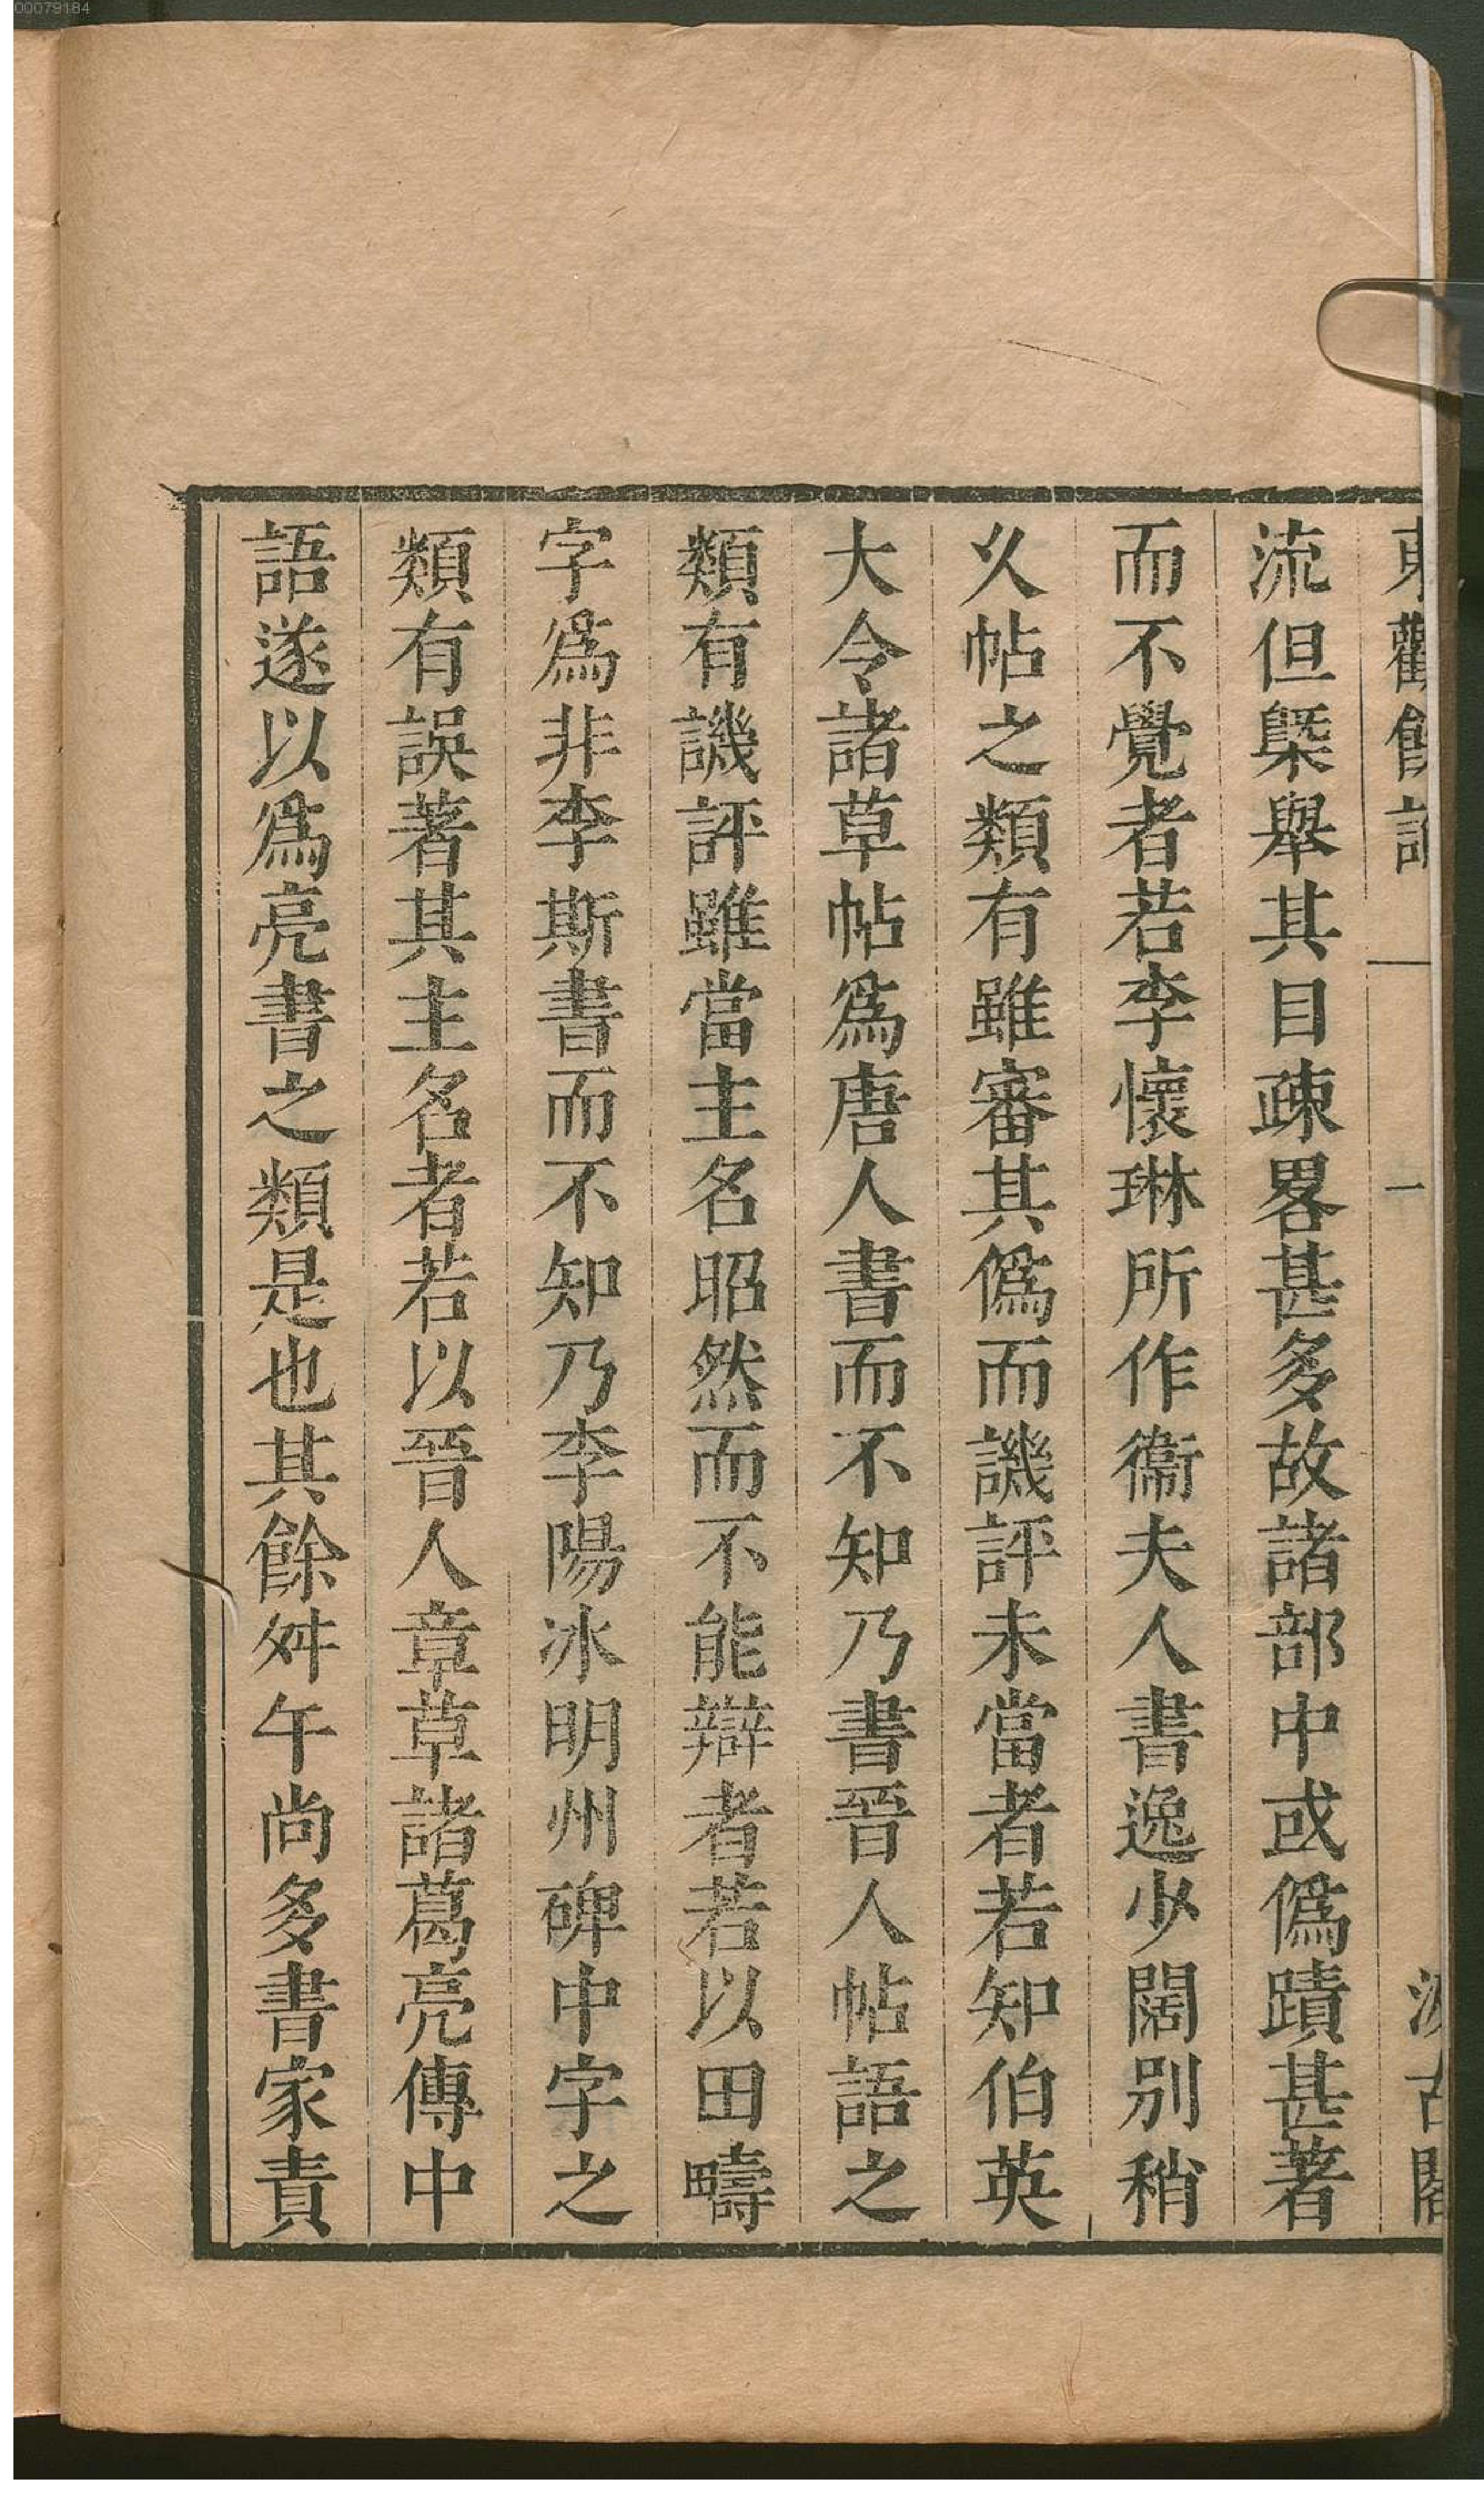 00079184
東觀餘論
一
汲古閣
流但槩舉其目疎畧甚多故諸部中或僞蹟甚著
而不覺者若李懷琳所作衞夫人書逸少闊别稍
乆帖之類有雖審其僞而譏評未當者若知伯英
大令諸草帖爲唐人書而不知乃書晉人帖語之
類有譏評雖當主名昭然而不能辯者若以田疇
字爲非李斯書而不知乃李陽冰明州碑中字之
類有誤著其主名者若以晉人章草諸葛亮傳中
語遂以爲亮書之類是也其餘舛午尚多書家責